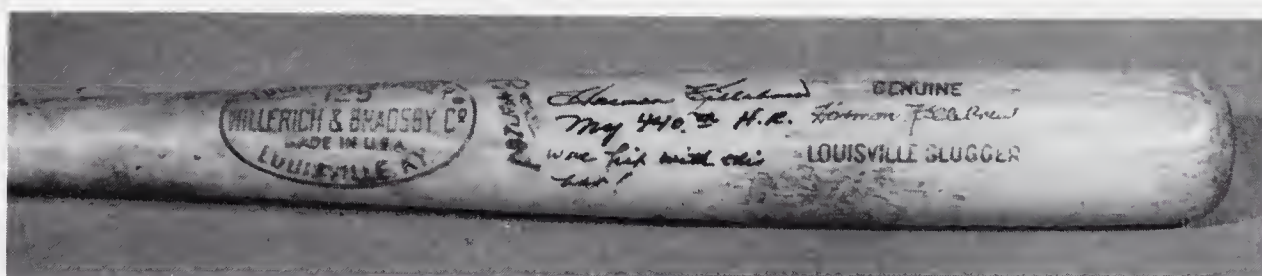 125
HILLERICH & BRADSBY Cº
MADE IN U.S.A.
LOUISVILLE, KY.
Harmon Killebrew
My 440.th H.R.
was hit with this
bat!
GENUINE
Harmon Killebrew
LOUISVILLE SLUGGER